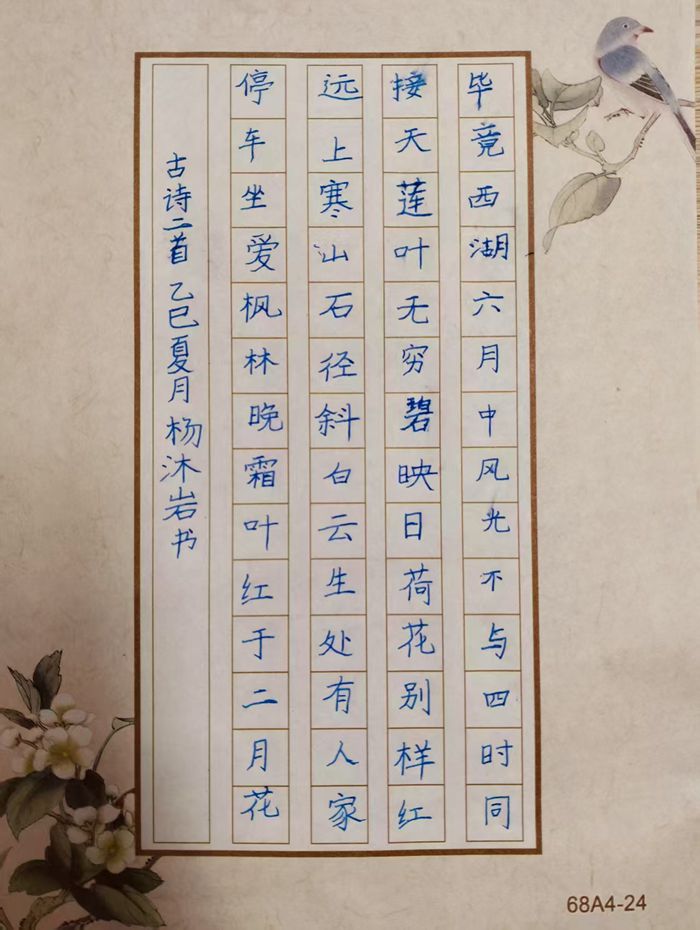 毕竟西湖六月中风光不与四时同
接天莲叶无穷碧映日荷花别样红
远上寒山石径斜白云生处有人家
停车坐爱枫林晚霜叶红于二月花
古诗二首 乙巳夏月 杨沐岩书
68A4-24